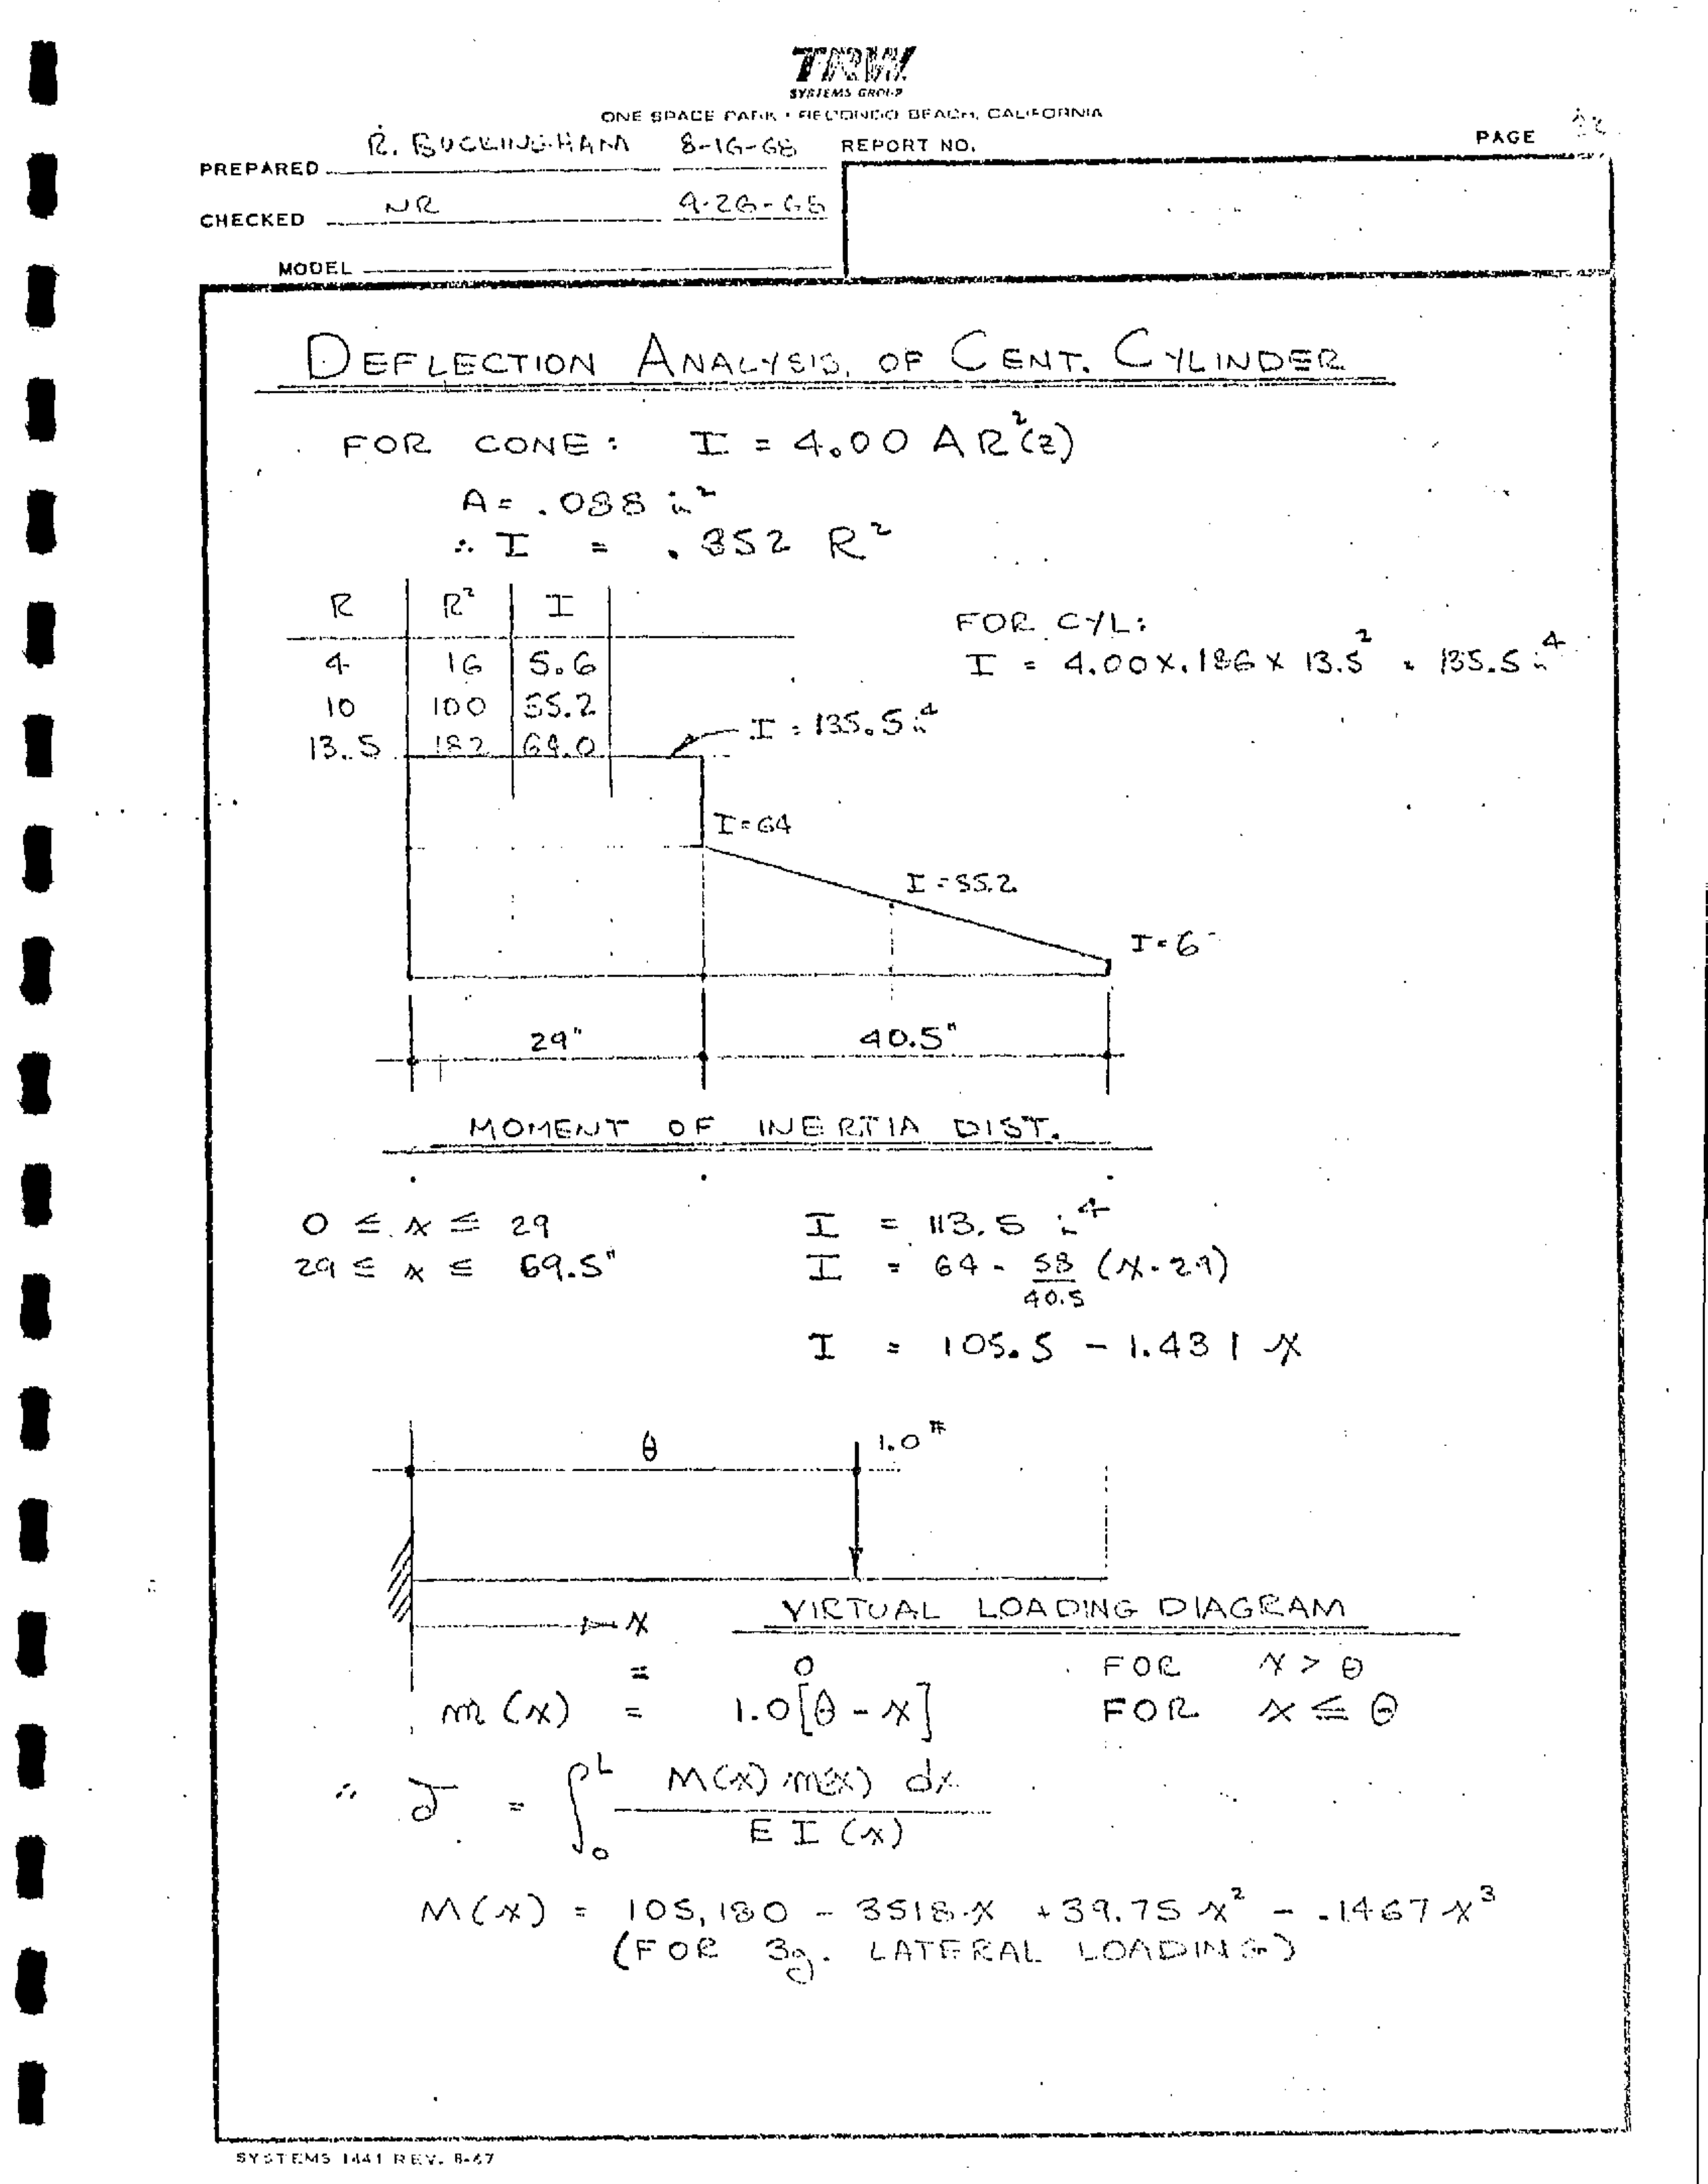 TRW
SYSTEMS GROUP
ONE SPACE PARK • REDONDO BEACH, CALIFORNIA
PREPARED R. BUCKINGHAM 8-16-68 REPORT NO. PAGE
CHECKED NR 9-26-68
MODEL
DEFLECTION ANALYSIS OF CENT. CYLINDER
FOR CONE: I = 4.00 AR²(z)
A = .088 in²
∴ I = .352 R²
R R² I
4 16 5.6
10 100 35.2
13.5 182 64.0
FOR CYL:
I = 4.00 x .186 x 13.5² = 135.5 in⁴
I = 135.5 in⁴
I = 64
I = 35.2
I = 6
29" 40.5"
MOMENT OF INERTIA DIST.
0 ≤ x ≤ 29 I = 113.5 in⁴
29 ≤ x ≤ 69.5" I = 64 - 58/40.5 (x - 29)
I = 105.5 - 1.431 x
θ 1.0#
x
VIRTUAL LOADING DIAGRAM
= 0 FOR x > θ
m(x) = 1.0[θ - x] FOR x ≤ θ
∴ δ = ∫₀ᴸ M(x) m(x) dx / E I(x)
M(x) = 105,180 - 3518 x + 39.75 x² - .1467 x³
(FOR 3g. LATERAL LOADING)
SYSTEMS 1441 REV. 8-67